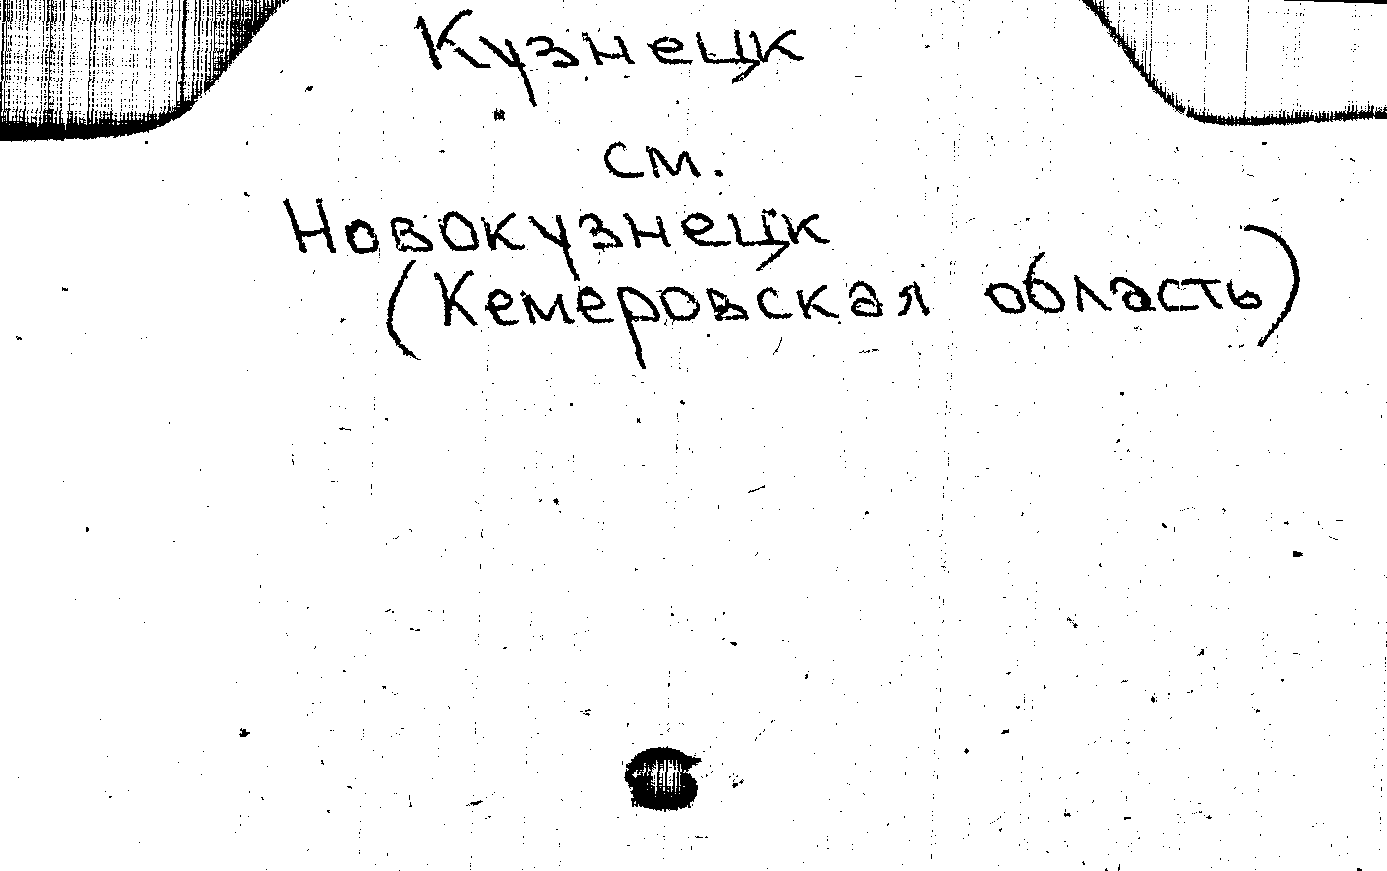 Кузнецк
см.
Новокузнецк
(Кемеровская область)